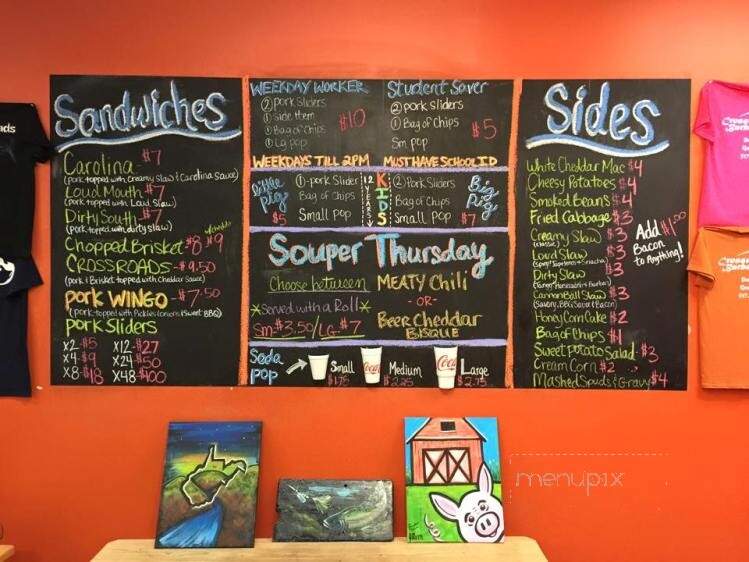 Sandwiches
Carolina $7
(pork topped with Creamy Slaw & Carolina Sauce)
Loud Mouth $7
(pork topped with Loud Slaw)
Dirty South $7
(pork topped with dirty slaw)
Chopped Brisket $8 $9
CROSSROADS - $9.50
(pork & Brisket topped with Cheddar Sauce)
pork WINGO - $7.50
(pork topped with Pickles, Onions & Sweet BBQ)
pork Sliders
x2 - $5 x12 - $27
x4 - $9 x24 - $50
x8 - $18 x48 - $100
WEEKDAY WORKER
② pork Sliders
① Side Item
① Bag of Chips
① Lg pop
$10
WEEKDAYS TILL 2PM
Student Saver
② pork Sliders
① Bag of Chips
Sm pop
$5
MUST HAVE SCHOOL ID
little pig
$5
① - pork Slider
Bag of Chips
Small pop
12 YEARS
KIDS
② Pork Sliders
Bag of Chips
Small pop
Big Pig
$7
Souper Thursday
Choose between
*Served with a Roll*
Sm - $3.50 / LG - $7
MEATY Chili
- OR -
Beer Cheddar
BISQUE
Soda pop
Small
$1.75
Medium
$2.25
Large
$2.75
Coca-Cola
Sides
White Cheddar Mac $4
Cheesy Potatoes $4
Smoked Beans $4
Fried Cabbage $3
Creamy Slaw $3
(classic)
Loud Slaw $3
Dirty Slaw $3
CannonBall Slaw $3
(Savory, BBQ Sauce & Bacon)
Honey Corn Cake $2
Bag of Chips $1
Sweet Potato Salad - $3
Cream Corn $2
Mashed Spuds & Gravy $4
Add $1.00
Bacon
to Anything!
menupix